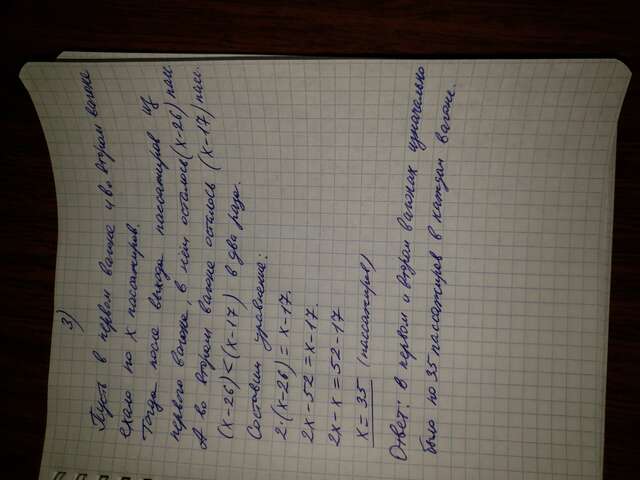 3)
Пусть в первом вагоне и во втором вагоне
ехало по х пассажиров.
Тогда после выхода пассажиров из
первого вагона, в нём осталось (х-26) пасс.
А во втором вагоне осталось (х-17) пасс.
(х-26) < (х-17) в два раза.
Составим уравнение:
2·(х-26) = х-17.
2х-52 = х-17.
2х-х = 52-17
х = 35 (пассажиров)
Ответ: в первом и втором вагонах изначально
было по 35 пассажиров в каждом вагоне.